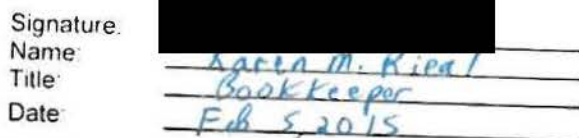 Signature:
Name: Karen M.
Title: Bookkeeper
Date: Feb 5, 2015